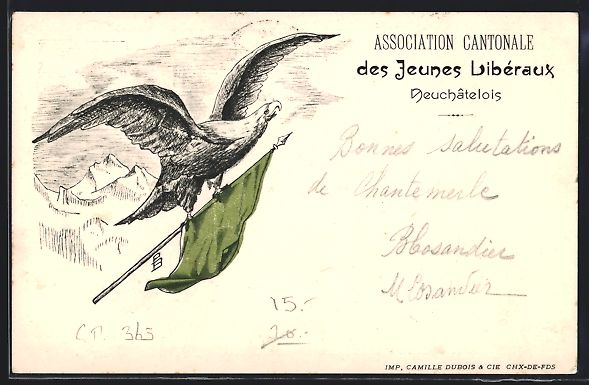 ASSOCIATION CANTONALE
des Jeunes Libéraux
Neuchâtelois
Bonnes salutations
de Chantemerle
BRosandier
M Rosandier
15.-
20.-
C.P. 365
IMP. CAMILLE DUBOIS & CIE CHX-DE-FDS